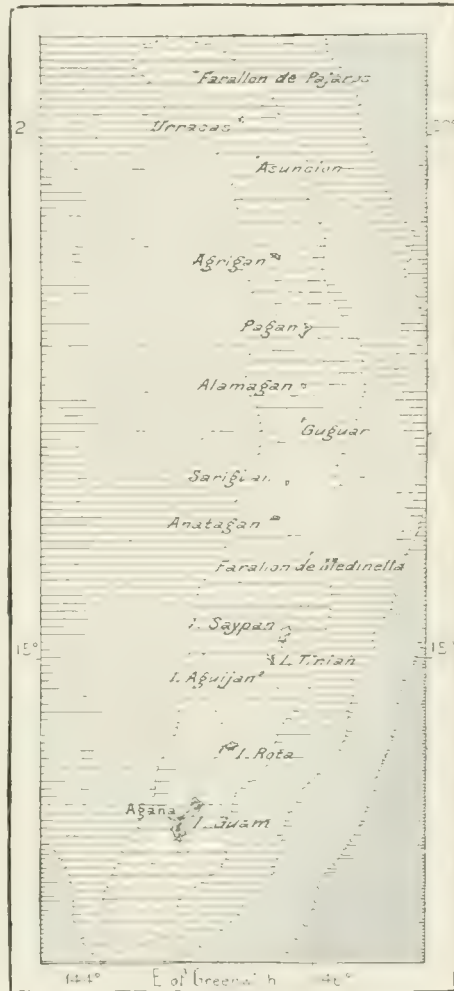 Farallon de Pajaros
2
Urracas
Asuncion
Agrigan
Pagan
Alamagan
Guguan
Sarigan
Anatagan
Farallon de Medinella
I. Saypan
15°
15°
I. Tinian
I. Aguijan
I. Rota
Agaña
I. Guam
144°
E of Greenwich